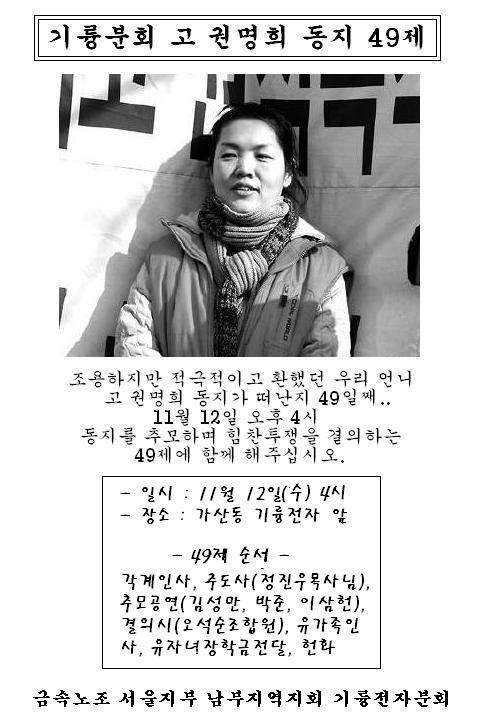 기륭분회 고 권명희 동지 49제
조용하지만 적극적이고 환했던 우리 언니
고 권명희 동지가 떠난지 49일째..
11월 12일 오후 4시
동지를 추모하며 힘찬투쟁을 결의하는
49제에 함께 해주십시오.
- 일시 : 11월 12일(수) 4시
- 장소 : 가산동 기륭전자 앞
- 49제 순서 -
각계인사, 추도사(정진우목사님),
추모공연(김성만, 박준, 이삼헌),
결의시(오석순조합원), 유가족인
사, 유자녀장학금전달, 헌화
금속노조 서울지부 남부지역지회 기륭전자분회